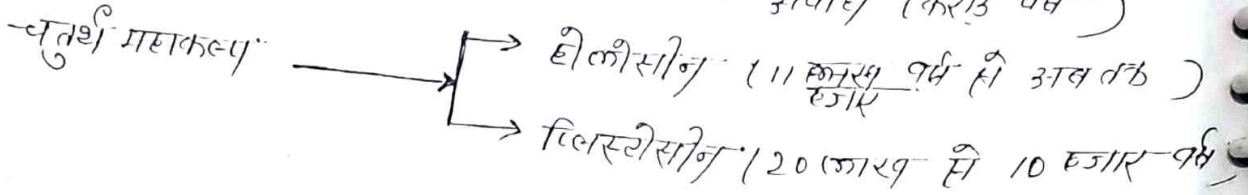 अवधि (करोड़ वर्ष)
चतुर्थ महाकल्प
होलोसीन (11 हजार वर्ष से अब तक)
प्लिस्टोसीन (20 लाख से 10 हजार वर्ष)